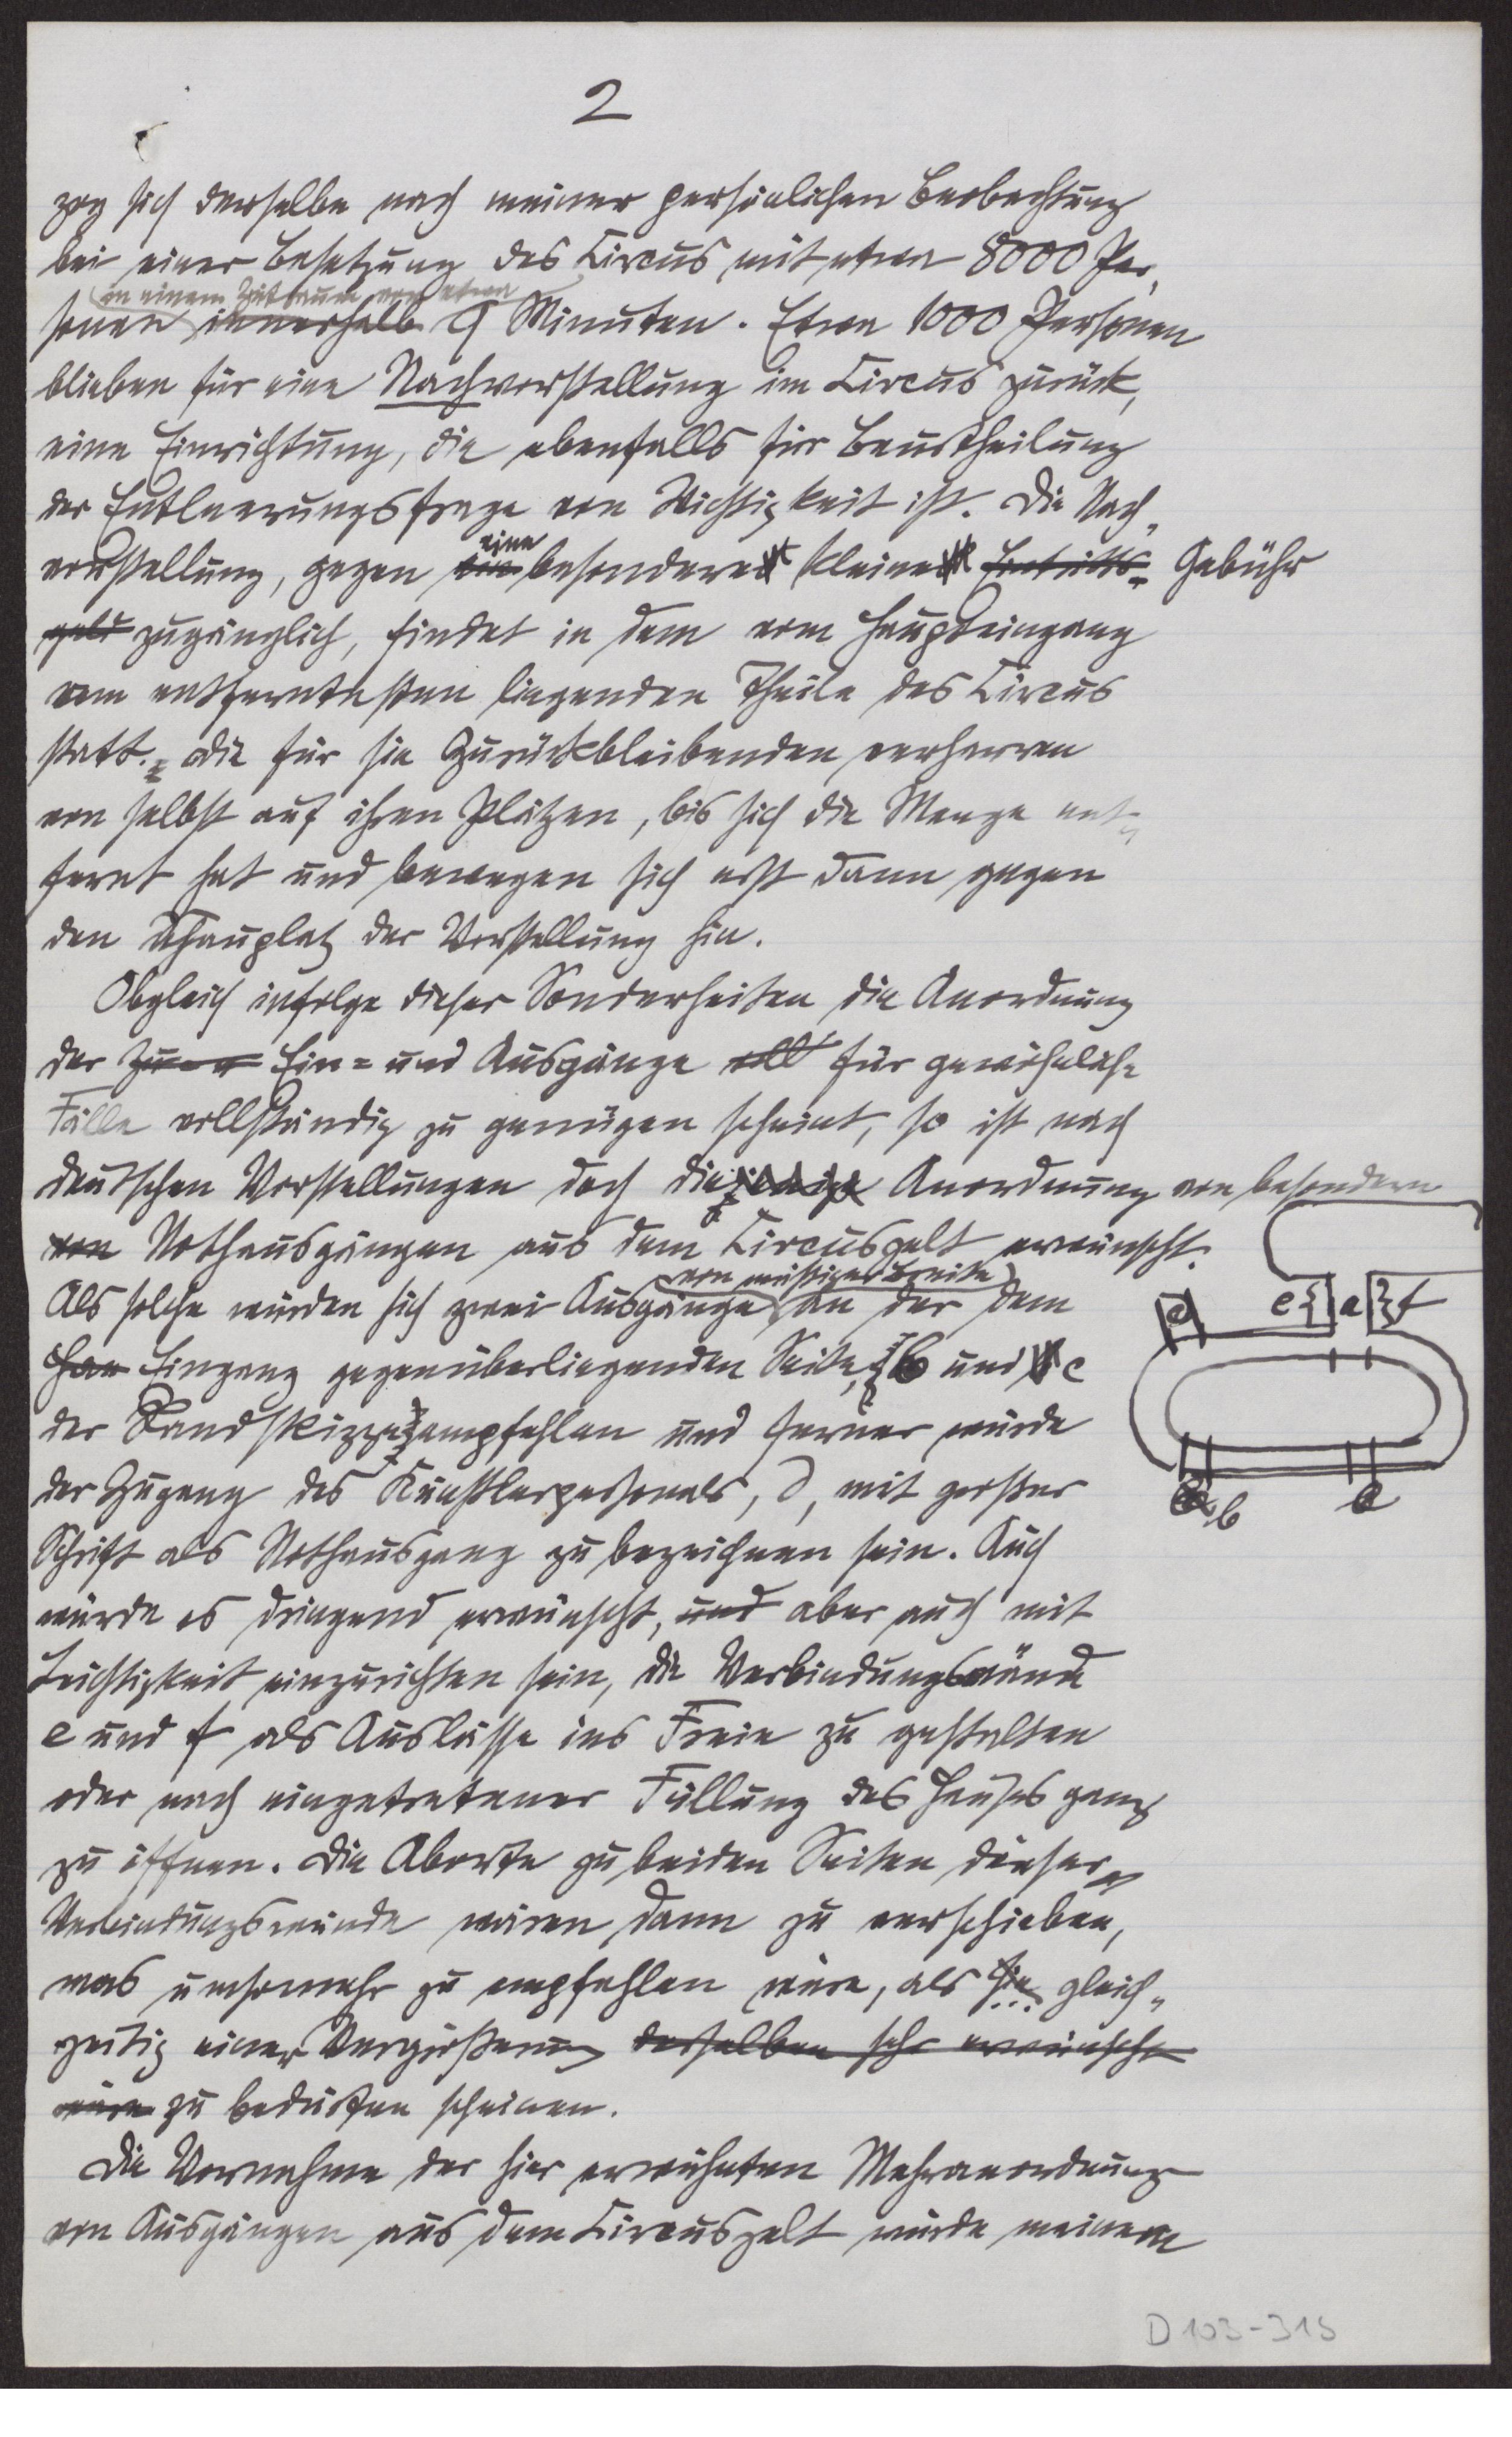 2
zog sich derselbe nach meiner persönlichen Beobachtung
bei einer Besetzung des Circus mit etwa 8000 Per„
in einem Zeitraum von etwa
sonen innerhalb 9 Minuten. Etwa 1000 Personen
blieben für eine Nachvorstellung im Circus zurück,
eine Einrichtung, die ebenfalls für Beurtheilung
der Entleerungsfrage von Wichtigkeit ist. Die Nach„
eine
vorstellung, gegen ein besonderes kleines Eintritts= Gebühr
geld zugänglich, findet in dem vom Haupteingang
am entferntesten liegenden Theile des Circus
statt. Die für sie Zurückbleibenden verharren
von selbst auf ihren Plätzen, bis sich die Menge ent„
fernt hat und bewegen sich erst dann gegen
den Schauplatz der Vorstellung hin.
Obgleich infolge dieser Sonderheiten die Anordnung
der Ein= und Ausgänge voll für gewöhnliche
Fälle vollständig zu genügen scheint, so ist nach
deutschen Vorstellungen doch diejenige Anordnung von besondern
von Nothausgängen aus dem Circuszelt erwünscht.
von mäßiger Breite
Als solche würden sich zwei Ausgänge an der dem
Eingang gegenüberliegenden Seite, b und c
der Randskizze empfehlen und ferner würde
der Zugang des Künstlerpersonals, d, mit großer
Schrift als Nothausgang zu bezeichnen sein. Auch
würde es dringend erwünscht, und aber auch mit
Leichtigkeit einzurichten sein, die Verbindungswände
e und f als Auslässe ins Freie zu gestalten
oder nach eingetretener Füllung des Hauses ganz
zu öffnen. Die Aborte zu beiden Seiten dieser
Verbindungswände wären dann zu verschieben,
was umsomehr zu empfehlen wäre, als sie gleich„
zeitig einer Vergrößerung derselben sehr erwünscht
wäre zu bedürfen scheinen.
Die Vornahme der hier erwähnten Mehranordnung
von Ausgängen aus dem Circuszelt würde meinem
d e a f
b c
D 103-315